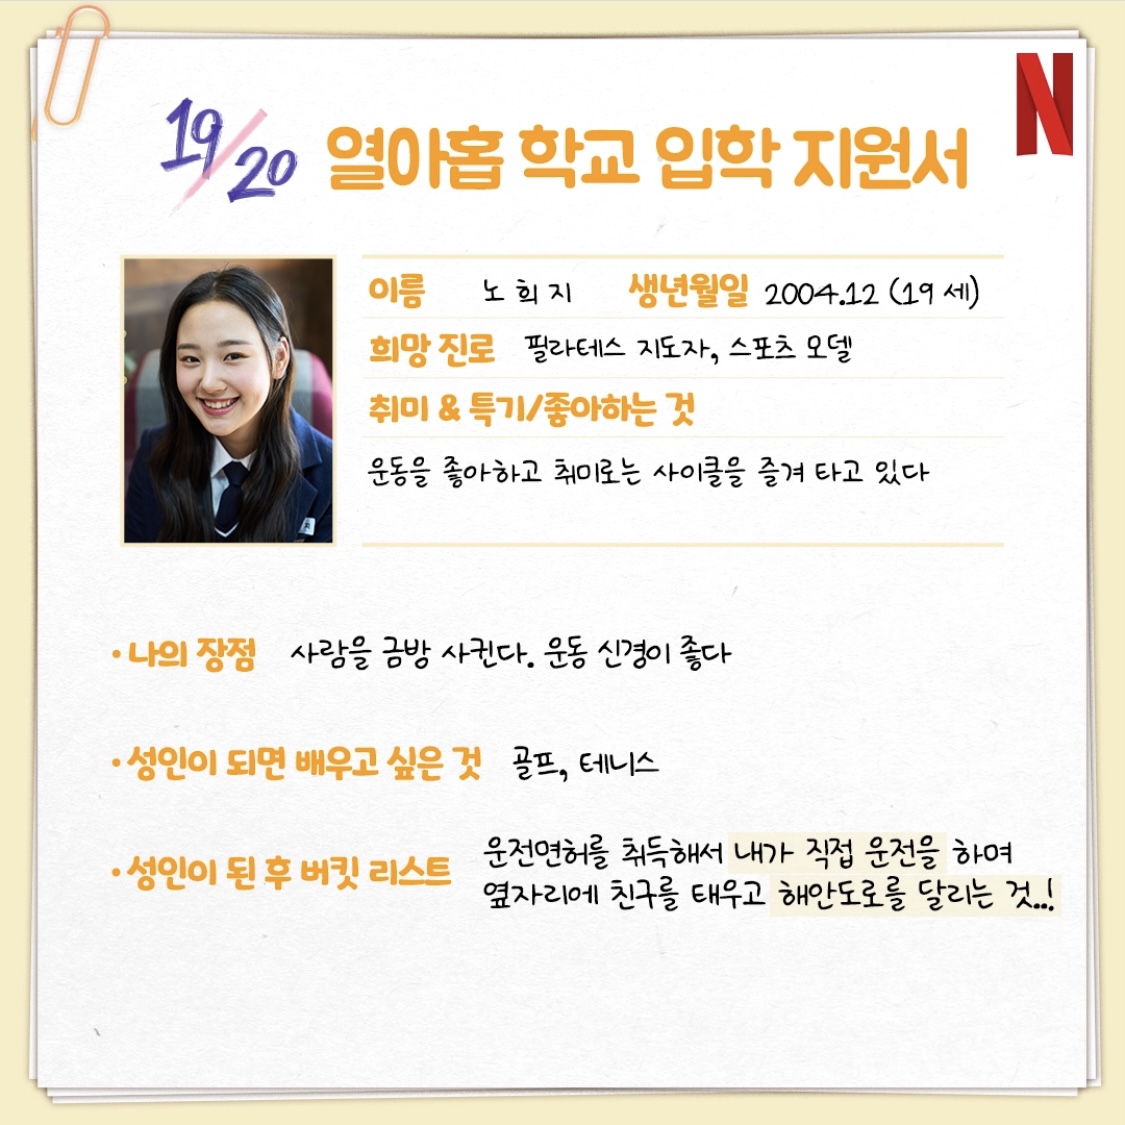 19/20 열아홉 학교 입학 지원서
N
이름 노희지 생년월일 2004.12 (19세)
희망 진로 필라테스 지도자, 스포츠 모델
취미 & 특기/좋아하는 것
운동을 좋아하고 취미로는 사이클을 즐겨 타고 있다
• 나의 장점 사람을 금방 사귄다. 운동 신경이 좋다
• 성인이 되면 배우고 싶은 것 골프, 테니스
• 성인이 된 후 버킷 리스트 운전면허를 취득해서 내가 직접 운전을 하며
옆자리에 친구를 태우고 해안도로를 달리는 것..!